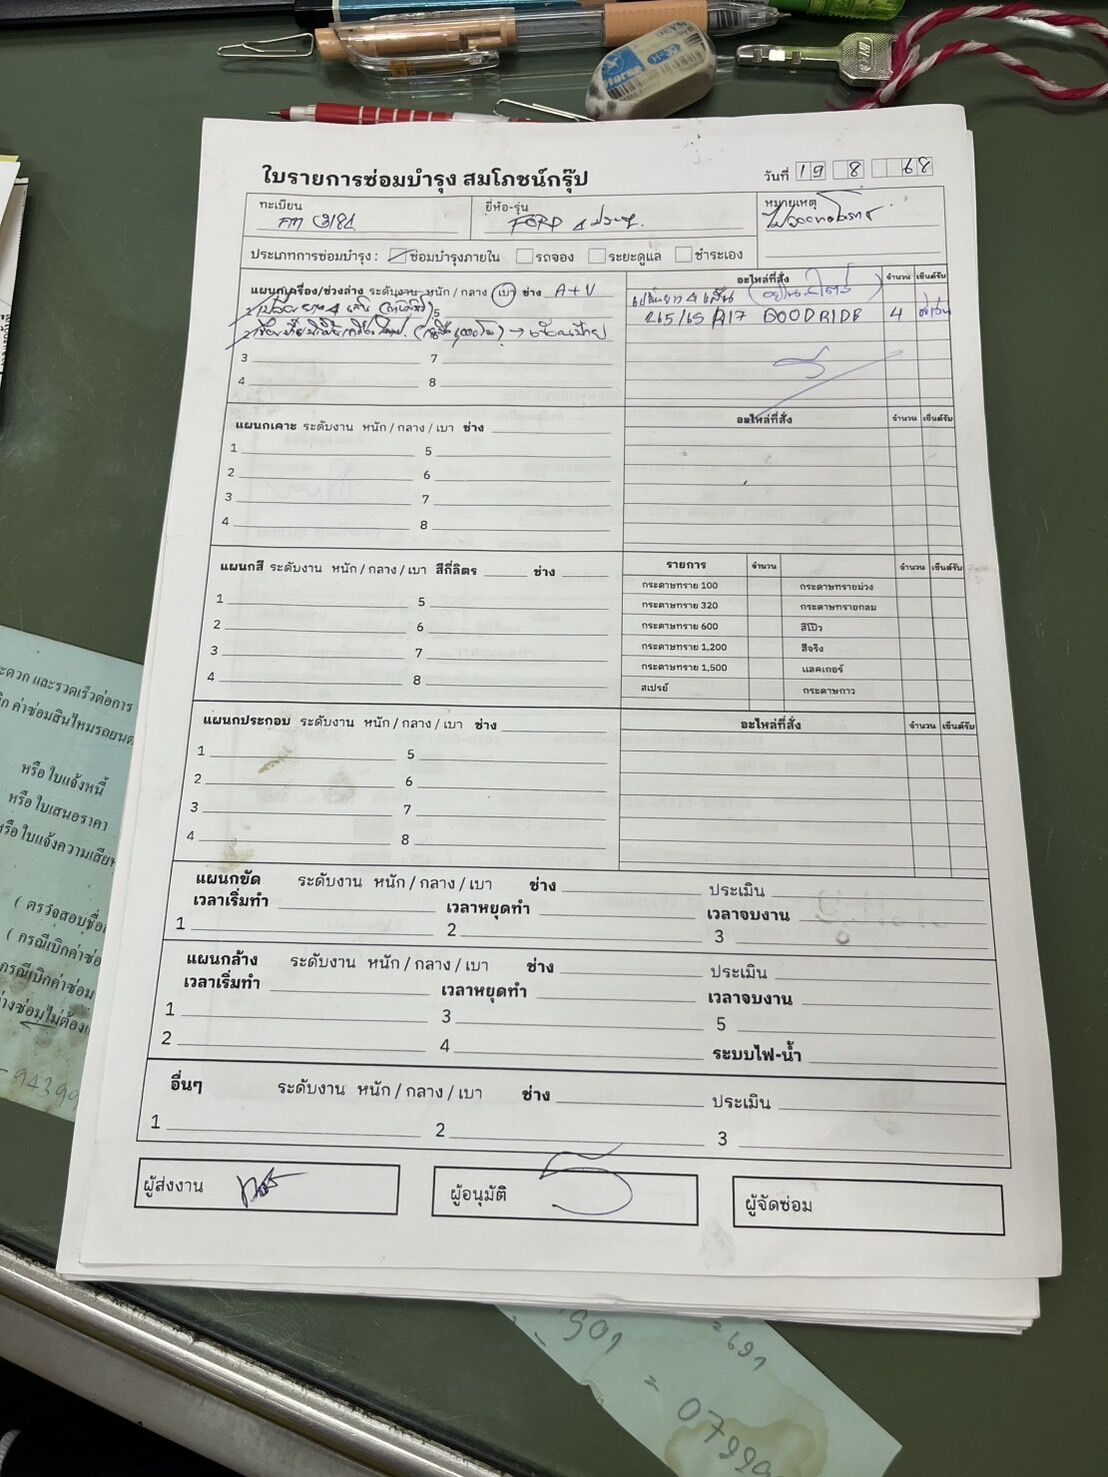 ใบรายการซ่อมบำรุง สมโภชน์กรุ๊ป
วันที่ 19 8 68
ทะเบียน
ยี่ห้อ-รุ่น FORD 4 ประตู
หมายเหตุ
ประเภทการซ่อมบำรุง : ซ่อมบำรุงภายใน รถจอง ระยะดูแล ชำระเอง
แผนกเครื่อง/ช่วงล่าง ระดับงาน หนัก / กลาง / เบา ช่าง A+V
อะไหล่ที่สั่ง จำนวน เซ็นต์รับ
5
265/65 R17 GOODRIDE 4
3 7
4 8
แผนกเคาะ ระดับงาน หนัก / กลาง / เบา ช่าง
อะไหล่ที่สั่ง จำนวน เซ็นต์รับ
1 5
2 6
3 7
4 8
แผนกสี ระดับงาน หนัก / กลาง / เบา สีกี่ลิตร ช่าง
รายการ จำนวน จำนวน เซ็นต์รับ
กระดาษทราย 100 กระดาษทรายม่วง
1 5
กระดาษทราย 320 กระดาษทรายกลม
2 6
กระดาษทราย 600 สีโป๊ว
3 7
กระดาษทราย 1,200 สีจริง
กระดาษทราย 1,500 แลคเกอร์
4 8
สเปรย์ กระดาษกาว
แผนกประกอบ ระดับงาน หนัก / กลาง / เบา ช่าง
อะไหล่ที่สั่ง จำนวน เซ็นต์รับ
1 5
2 6
3 7
4 8
แผนกขัด ระดับงาน หนัก / กลาง / เบา ช่าง ประเมิน
เวลาเริ่มทำ เวลาหยุดทำ เวลาจบงาน
1 2 3
แผนกล้าง ระดับงาน หนัก / กลาง / เบา ช่าง ประเมิน
เวลาเริ่มทำ เวลาหยุดทำ เวลาจบงาน
1 3 5
2 4 ระบบไฟ-น้ำ
อื่นๆ ระดับงาน หนัก / กลาง / เบา ช่าง ประเมิน
1 2 3
ผู้ส่งงาน
ผู้อนุมัติ
ผู้จัดซ่อม
และรวดเร็วต่อการ
ค่าซ่อมสินไหมรถยนต์
หรือ ใบแจ้งหนี้
หรือ ใบเสนอราคา
หรือ ใบแจ้งความเสียหาย
( ตรวจสอบชื่อ
( กรณีเบิกค่าซ่อม
กรณีเบิกค่าซ่อม